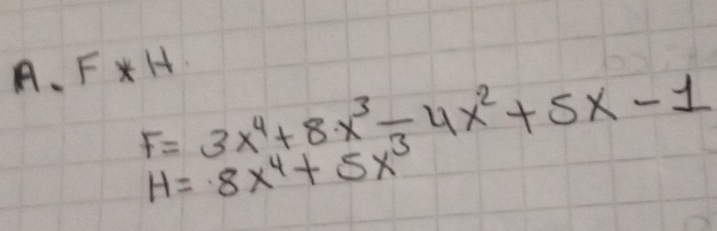 A. F * H
F = 3x⁴ + 8x³ - 4x² + 5x - 1
H = 8x⁴ + 5x³